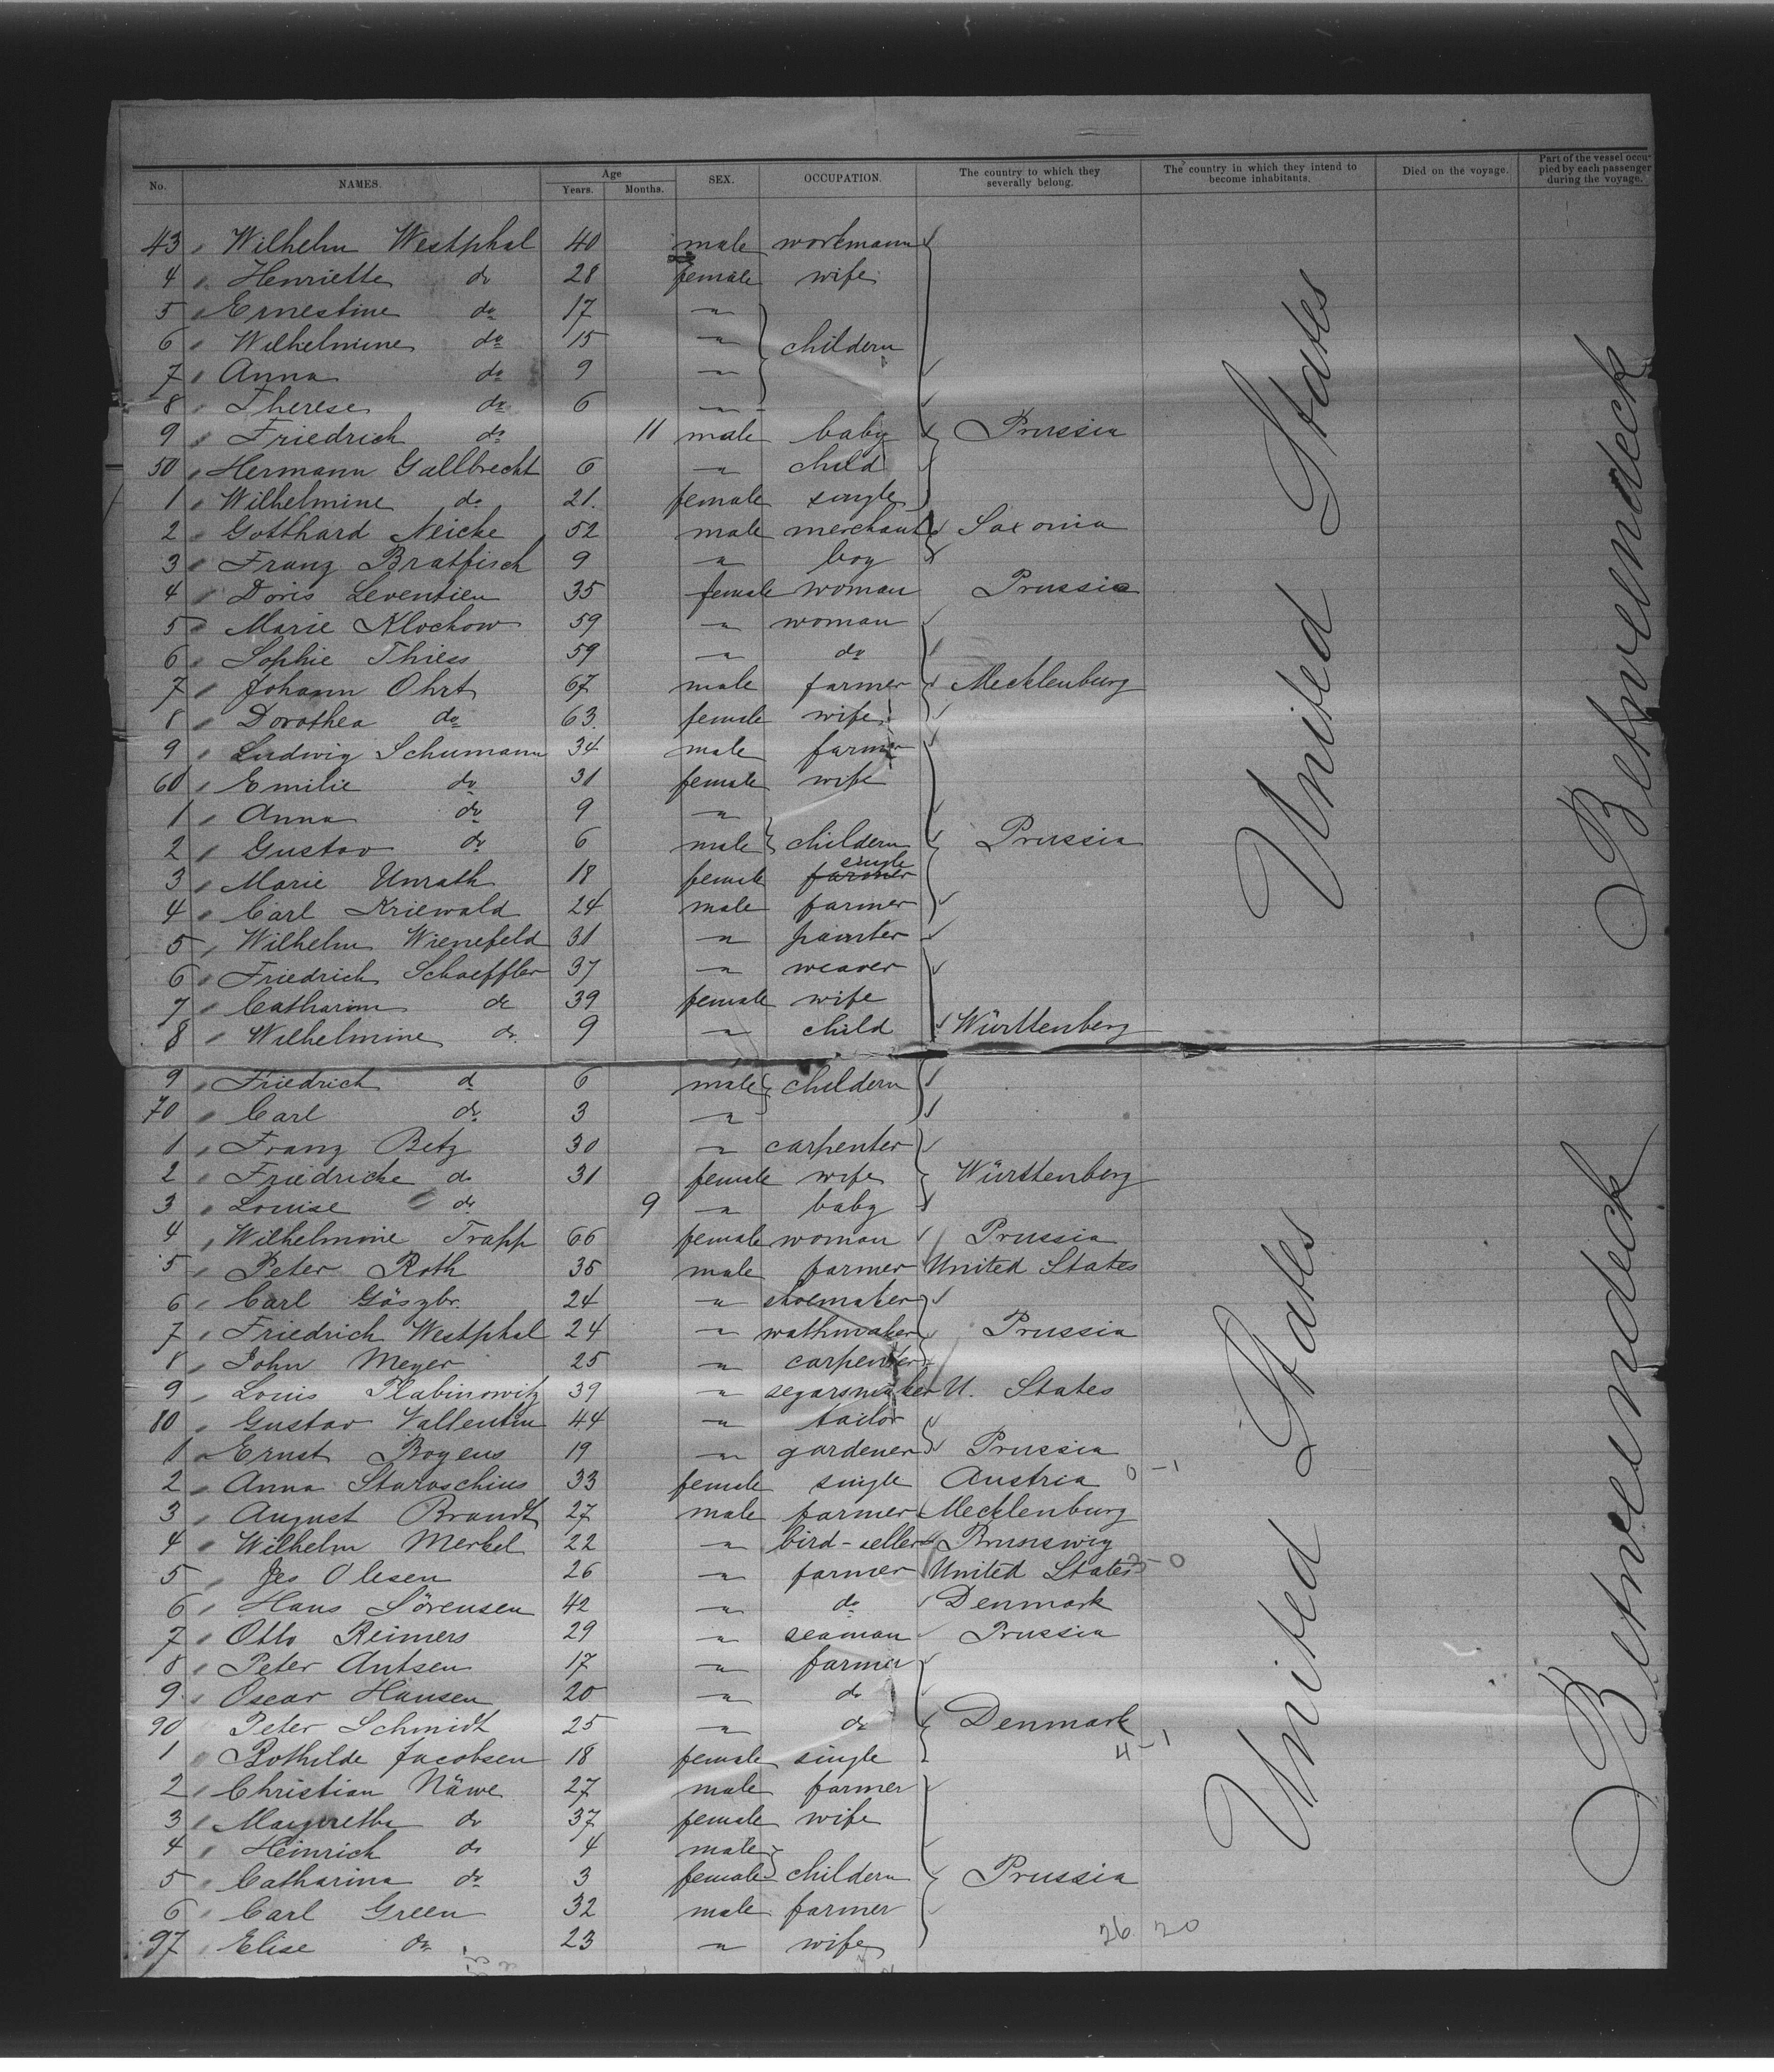 No. NAMES. Age Years. Months. SEX. OCCUPATION. The country to which they severally belong. The country in which they intend to become inhabitants. Died on the voyage. Part of the vessel occupied by each passenger during the voyage.
43 " Wilhelm Westphal 40 male workmann
4 " Henriette do 28 female wife
5 " Ernestine do 17 "
6 " Wilhelmine do 15 " childern
7 " Anna do 9 "
8 " Therese do 6 "
9 " Friedrich do 11 male baby Prussia
50 " Hermann Gallbrecht 6 " child
1 " Wilhelmine do 21. female single
2 " Gotthard Neicke 52 male merchant Saxonia
3 " Franz Bratfisch 9 " boy
4 " Doris Leventien 35 female woman Prussia
5 " Marie Klockow 59 " woman
6 " Sophie Thiess 59 " do
7 " Johann Ohrt 67 male farmer Mecklenburg
8 " Dorothea do 63. female wife
9 " Ludwig Schumann 34 male farmer
60 " Emilie do 31 female wife
1 " Anna do 9 "
2 " Gustav do 6 male childern Prussia
3 " Marie Unrath 18 female farmer single
4 " Carl Kriewald 24 male farmer
5 " Wilhelm Wienefeld 31 " painter
6 " Friedrich Schaeffler 37 " weaver
7 " Catharine do 39 female wife
8 " Wilhelmine do 9 " child Württenberg
United States
Betweendeck
9 " Friedrich do 6 male childern
70 " Carl do 3 "
1 " Franz Betz 30 " carpenter
2 " Friedricke do 31 female wife Württenberg
3 " Louise do 9 " baby
4 " Wilhelmine Trapp 66 female woman Prussia
5 " Peter Roth 35 male farmer United States
6 " Carl 24 " shoemaker
7 " Friedrich Westphal 24 " wathmaker Prussia
8 " John Meyer 25 " carpenter
9 " Louis 39 " segarsmaker U. States
80 " Gustav Vallentin 44 " tailor
1 " Ernst Boyens 19 " gardener Prussia
2 " Anna Staraschius 33 female single Austria 0-1
3 " August Brandt 27 male farmer Mecklenburg
4 " Wilhelm Merkel 22 " bird-seller Brunswig
5 " Jes Olesen 26 " farmer United States 0
6 " Hans Sörensen 42 " do Denmark
7 " Otto Reimers 29 " seaman Prussia
8 " Peter Antsen 17 " farmer
9 " Oscar Hansen 20 " do
90 Peter Schmidt 25 " do Denmark
1 " Bothilde Jacobsen 18 female single 4-1
2 " Christian Näwe 27 male farmer
3 " Margretha do 37 female wife
4 " Heinrich do 4 male
5 " Catharina do 3 female childern Prussia
6 " Carl Green 32 male farmer
97 " Elise do 23 " wife 26 20
United States
Betweendeck